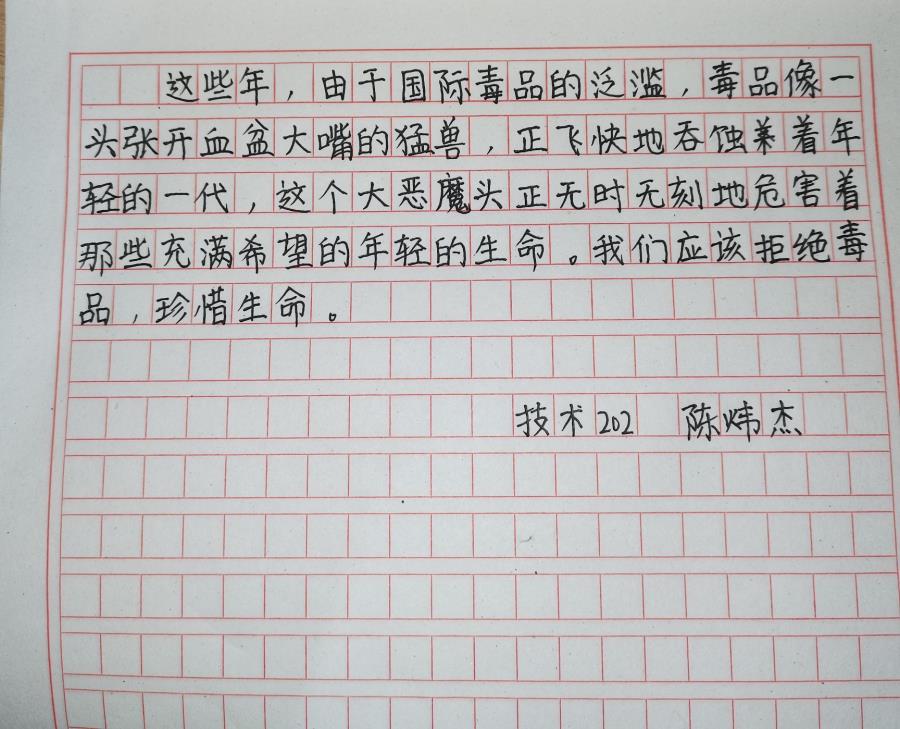 这些年，由于国际毒品的泛滥，毒品像一
头张开血盆大嘴的猛兽，正飞快地吞蚀着年
轻的一代，这个大恶魔头正无时无刻地危害着
那些充满希望的年轻的生命。我们应该拒绝毒
品，珍惜生命。
技术202 陈炜杰